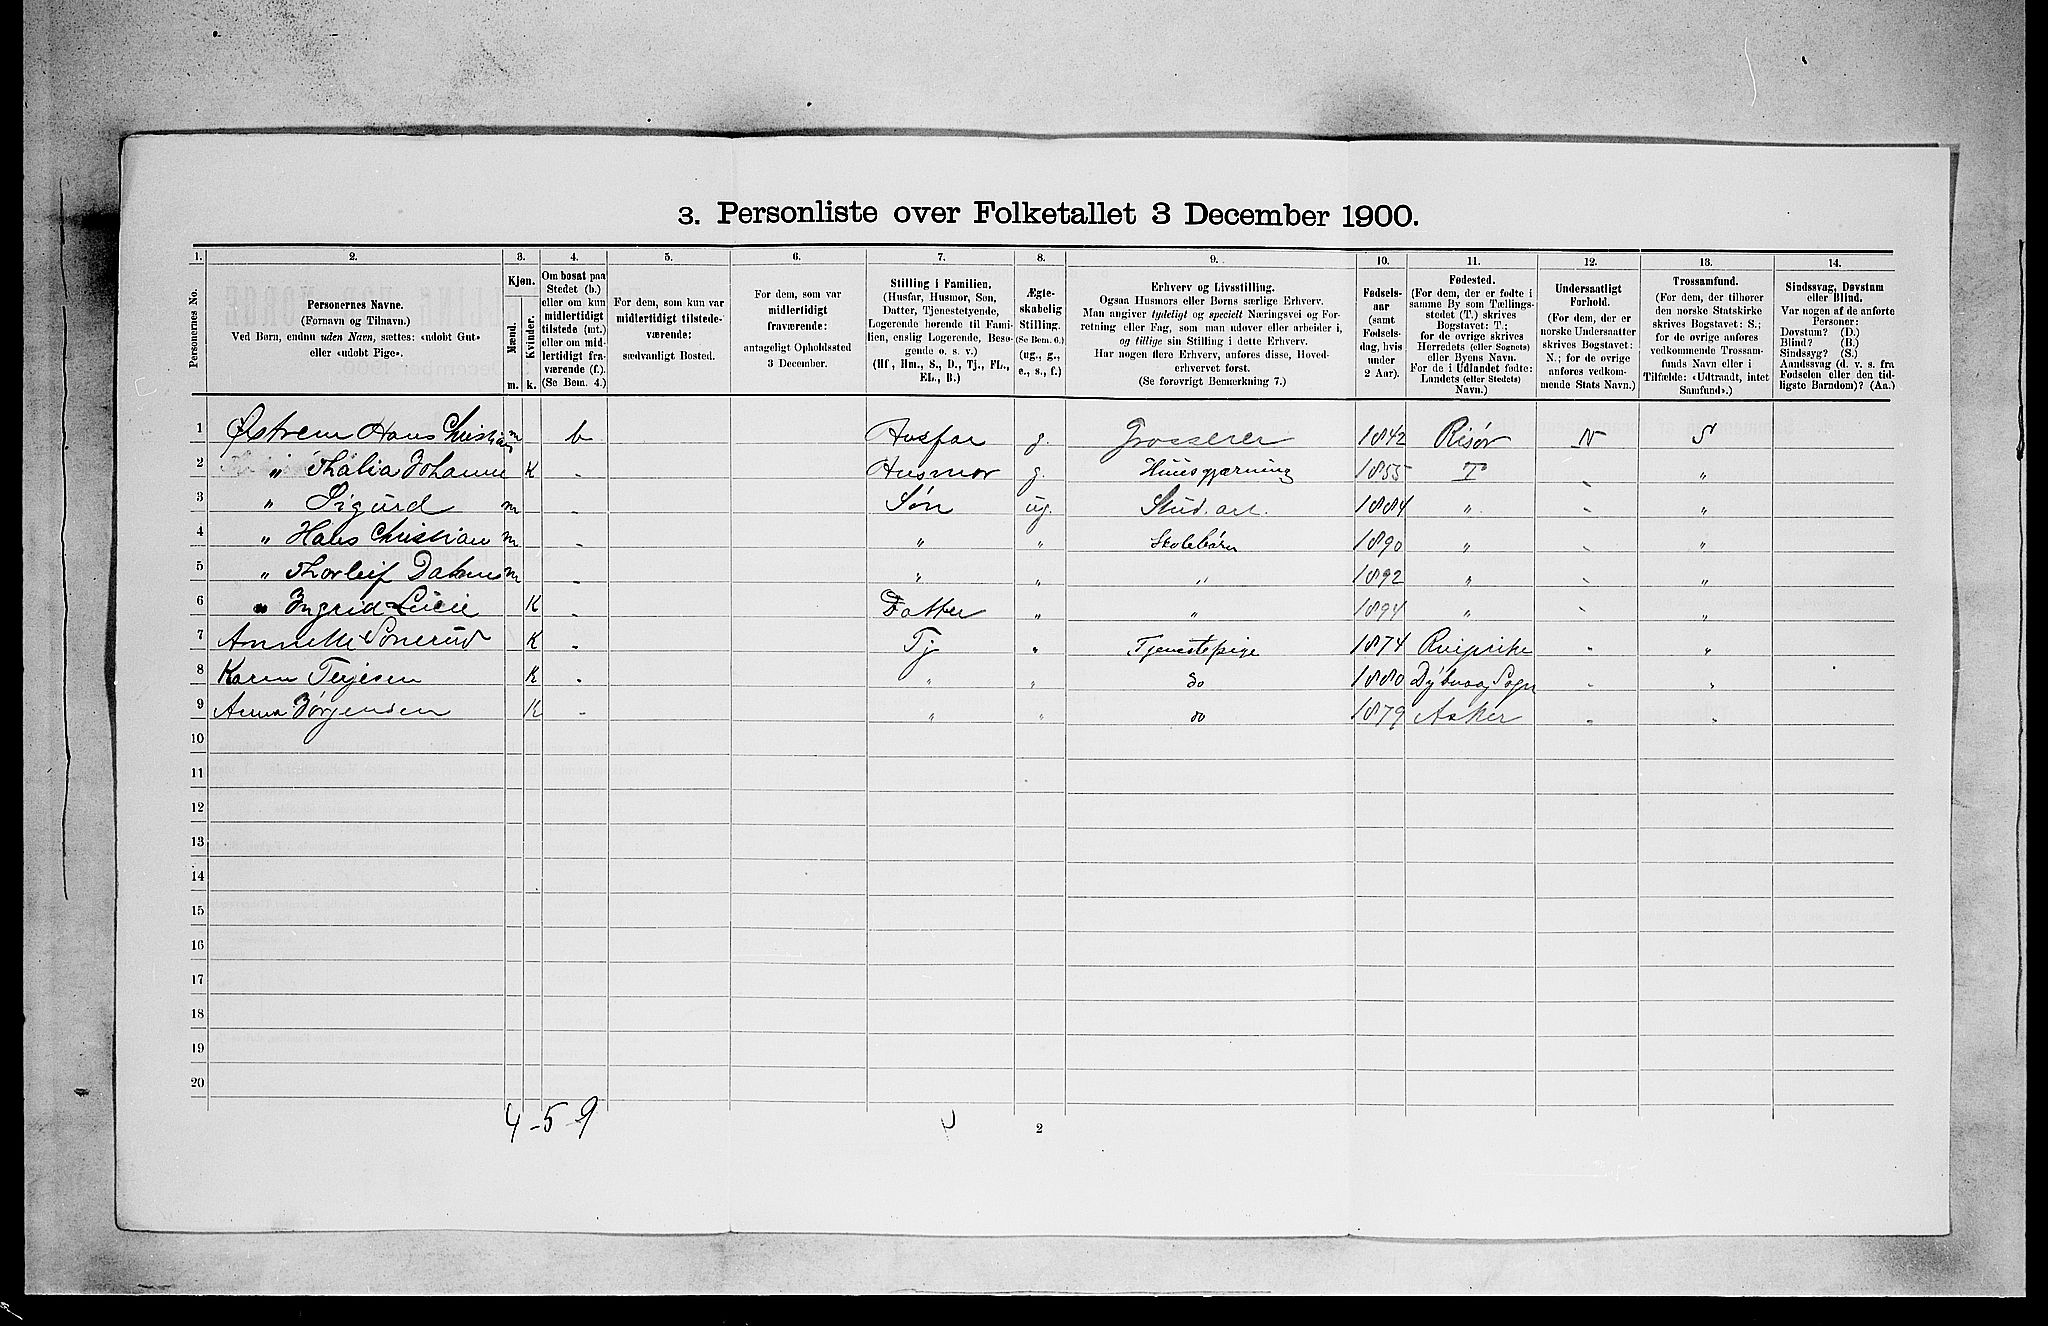 3. Personliste over Folketallet 3 December 1900.
1. 2. 3. 4. 5. 6. 7. 8. 9. 10. 11. 12. 13. 14.
Personernes No.
Personernes Navne.
(Fornavn og Tilnavn.)
Ved Børn, endnu uden Navn, sættes: «udøbt Gut»
eller «udøbt Pige».
Kjøn.
Mænd.
Kvinder.
m. k.
Om bosat paa
Stedet (b.)
eller om kun
midlertidigt
tilstede (mt.)
eller om mid-
lertidigt fra-
værende (f.).
(Se Bem. 4.)
For dem, som kun var
midlertidigt tilstede-
værende:
sædvanligt Bosted.
For dem, som var
midlertidigt
fraværende:
antageligt Opholdssted
3 December.
Stilling i Familien.
(Husfar, Husmor, Søn,
Datter, Tjenestetyende,
Logerende hørende til Fami-
lien, enslig Logerende, Besø-
gende o. s. v.)
(Hf, Hm., S., D., Tj., FL.,
EL., B.)
Ægte-
skabelig
Stilling.
(Se Bem. 6.)
(ug., g.,
e., s., f.)
Erhverv og Livsstilling.
Ogsaa Husmors eller Børns særlige Erhverv.
Man angiver tydeligt og specielt Næringsvei og For-
retning eller Fag, som man udøver eller arbeider i,
og tillige sin Stilling i dette Erhverv.
Har nogen flere Erhverv, anføres disse, Hoved-
erhvervet først.
(Se forøvrigt Bemærkning 7.)
Fødsels-
aar
(samt
Fødsels-
dag, hvis
under
2 Aar).
Fødested.
(For dem, der er fødte i
samme By som Tællings-
stedet (T.) skrives
Bogstavet: T.;
for de øvrige skrives
Herredets (eller Sognets)
eller Byens Navn.
For de i Udlandet fødte:
Landets (eller Stedets)
Navn.)
Undersaatligt
Forhold.
(For dem, der er
norske Undersaatter
skrives Bogstavet:
N.; for de øvrige
anføres vedkom-
mende Stats Navn.)
Trossamfund.
(For dem, der tilhører
den norske Statskirke
skrives Bogstavet: S.;
for de øvrige anføres
vedkommende Trossam-
funds Navn eller i
Tilfælde: «Udtraadt, intet
Samfund».)
Sindssvag, Døvstum
eller Blind.
Var nogen af de anførte
Personer:
Døvstum? (D.)
Blind? (B.)
Sindssyg? (S.)
Aandssvag (d. v. s. fra
Fødselen eller den tid-
ligste Barndom)? (Aa.)
1 Østrem Hans Christian m b Husfar g. Grosserer 1842 Risør N S
2 " Thalia Johanne K - Husmor g. Huusgjærning 1855 T - "
3 " Sigurd m - Søn ug. Stud. art. 1884 " - "
4 " Hans Christian m - " " Skolebørn 1890 " - "
5 " Thorleif m - " " " 1892 " - "
6 " Ingrid Lucie K - Datter " " 1894 " - "
7 Annette Sonerud K - Tj " Tjenestepige 1874 - "
8 Karen Terjesen K - " " do 1880 Dybvaag Sogn - "
9 Anna Jørgensen K - " " do 1879 Asker - "
10
11
12
13
14
15
16
17
18
19
20
4 - 5 9
2